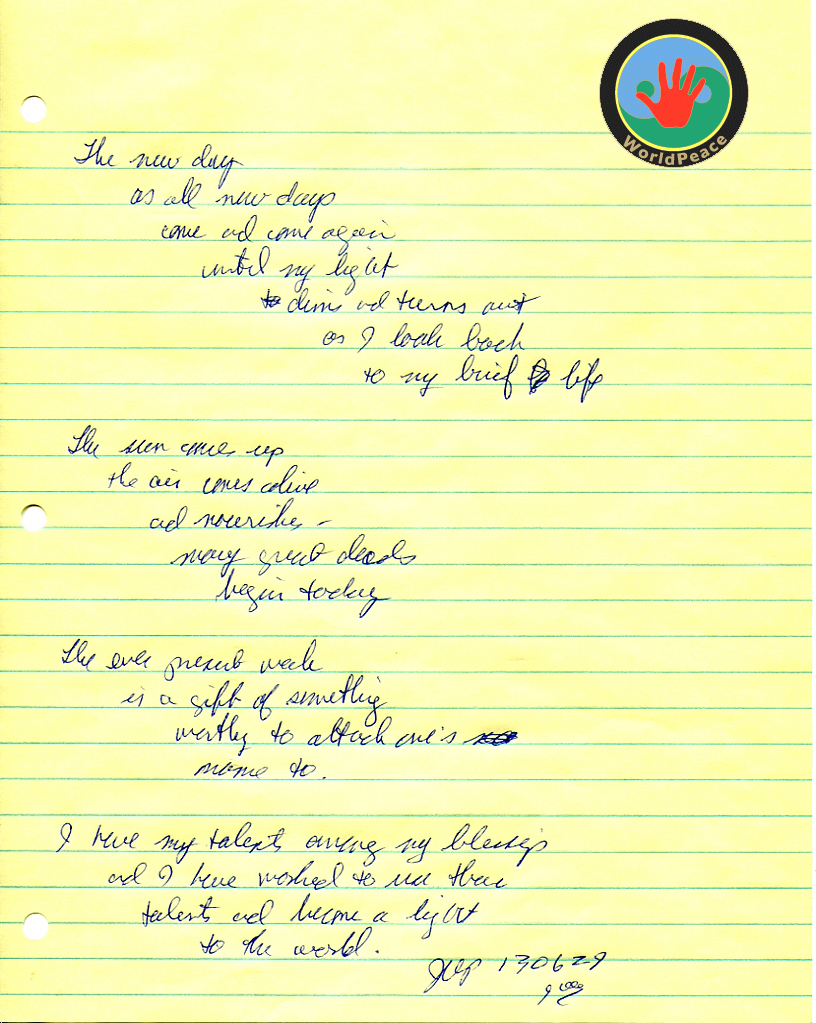 WorldPeace
The new day
as all new days
come and come again
until my light
dims and turns out
as I look back
to my brief life
The sun comes up
the air comes alive
and nourishes -
many great deeds
begin today
The ever present work
is a gift of something
worthy to attach one's
name to.
I have my talents among my blessings
and I have worked to use these
talents and become a light
to the world.
130629